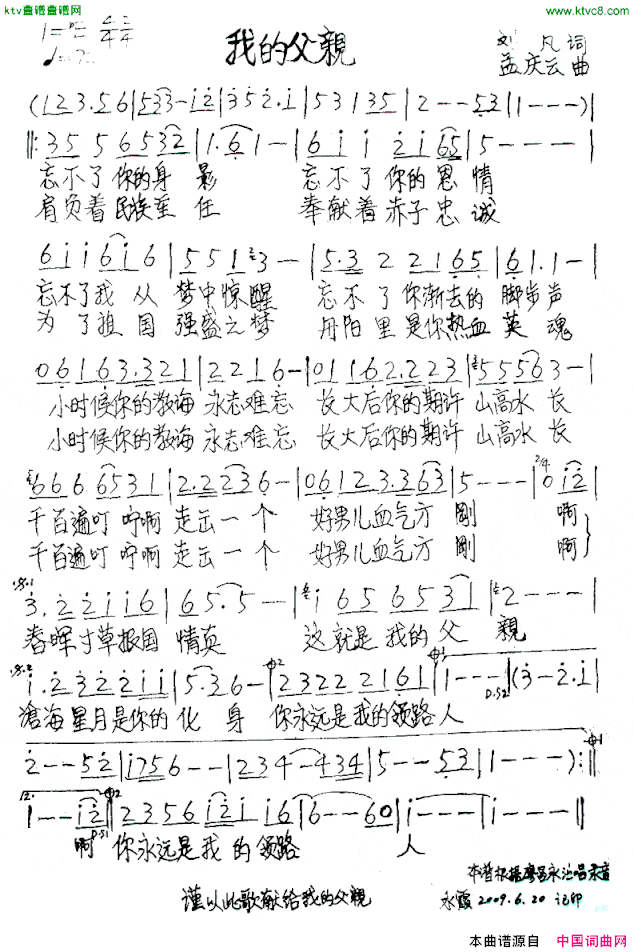 ktv查谱查谱网
www.ktvc8.com
我的父親
刘 凡 词
孟庆云 曲
(1 2 3. 5 6 | 5 3 3 - 1 2 | 3 5 2. 1 | 5 3 1 3 5 | 2 - - 5 3 | 1 - - - ) |
‖: 3 5 5 6 5 3 2 | 1. 6 1 - | 6 1 1 2 1 6 5 | 5 - - - |
忘不了你的身 影 忘不了你的恩 情
肩负着民族重 任 奉献着赤子忠 诚
6 1 1 6 1 6 | 5 5 1 3 - | 5. 3 2 2 1 6 5 | 6. 1. 1 - |
忘不了我 从 梦中惊醒 忘不了你渐去的 脚步声
为 了祖 国 强盛之梦 丹阳里是你热血 英 魂
0 6 1 6 3. 3 2 1 | 2 2 1 6 - | 0 1 1 6 2. 2 2 3 | 5 5 5 6 3 - |
小时候你的教诲 永志难忘 长大后你的期许 山高水 长
小时候你的教诲 永志难忘 长大后你的期许 山高水 长
6 6 6 6 5 3 1 | 2. 2 2 3 6 - | 0 6 1 2 3. 3 6 3 | 5 - - - | 2/4 0 1 2 |
千百遍叮咛啊 走出一个 好男儿血气方 刚 啊
千百遍叮咛啊 走出一个 好男儿血气方 刚 啊
3. 2 2 1 1 6 | 6 5. 5 - - | 1 6 5 6 5 3 1 | 2 - - - |
春晖寸草报国 情真 这就是我的父 親
1. 2 3 2 2 1 1 | 5. 3 6 - | 2 3 2 2 2 1 6 1 | 1 - - - | (3 - 2. 1 |
滄海星月是你的 化 身 你永远是我的领路人
2 - - 5 2 | 1 7 5 6 - - | 2 3 4 - 4 3 4 | 5 - - 5 3 | 1 - - - ) :‖
1 - - 1 2 | 2 3 5 6 1 2 1 1 6 | 6 - - 6 0 | 1 - - - | 1 - - - ‖
啊 你永远是我 的 领路 人
本谱根据廖昌永演唱录音
谨以此歌献给我的父親
永霞 2009.6.20 记印
本曲谱源自 中国词曲网